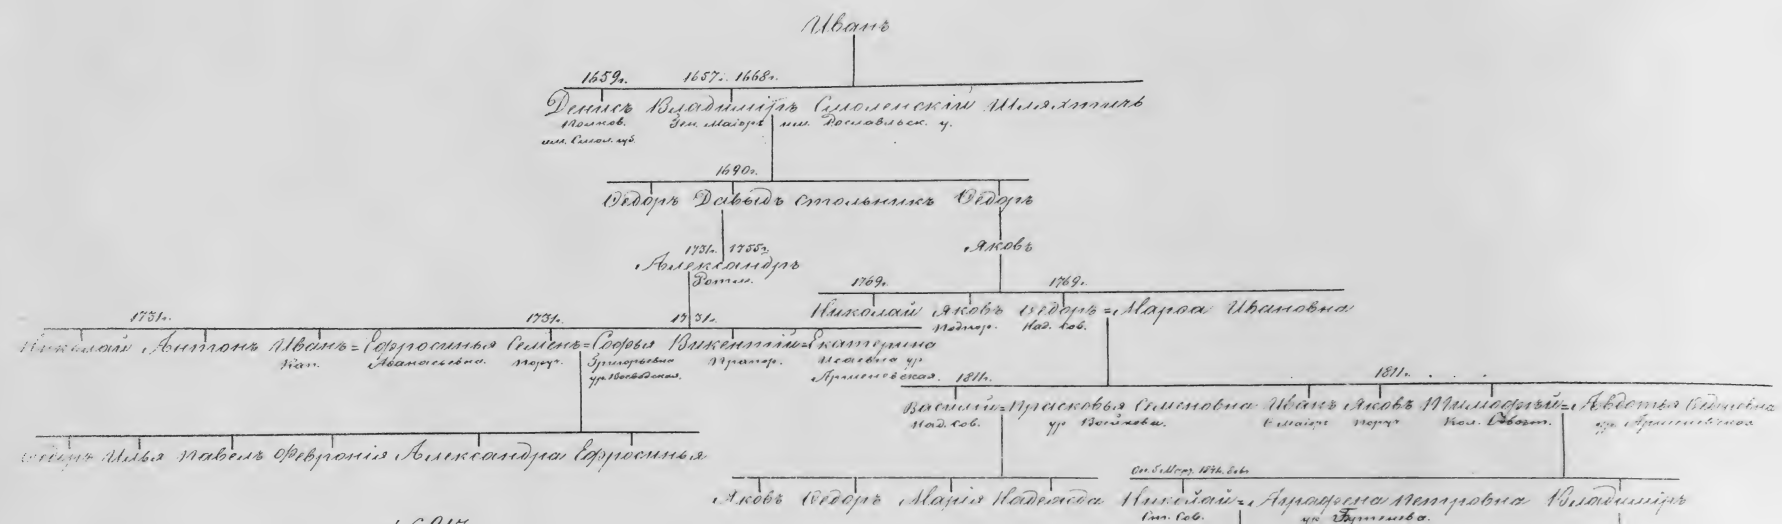 Иванъ
1659г. 1657г. 1668г.
Денисъ Владиміръ Смоленскій Шляхтичъ
Полков. Ген. Маіоръ пом. Рославльск. у.
пом. Смол. губ.
1690г.
Ѳедоръ Давыдъ стольникъ Ѳедоръ
1731г. 1755г. Яковъ
Александръ
Ротм.
1769г. 1769г.
Николай Яковъ Ѳедоръ = Марѳа Ивановна
Над. Сов.
1731г. 1731г. 1731г.
Николай Антонъ Иванъ = Ефросинья Семенъ = Софья Викентій = Екатерина
Кап. Аѳанасьевна поруч. Григорьевна Прапор. Исаевна ур.
1811г. 1811г.
Василій = Прасковья Семеновна Иванъ Яковъ Тимоѳей = Авдотья
Над. Сов. ур. поруч. Кол.
Илья Павелъ Февронія Александра Ефросинья
Яковъ Ѳедоръ Марія Надежда Николай = Аграфена Петровна Владиміръ
Ст. Сов. ур. Бутенева.